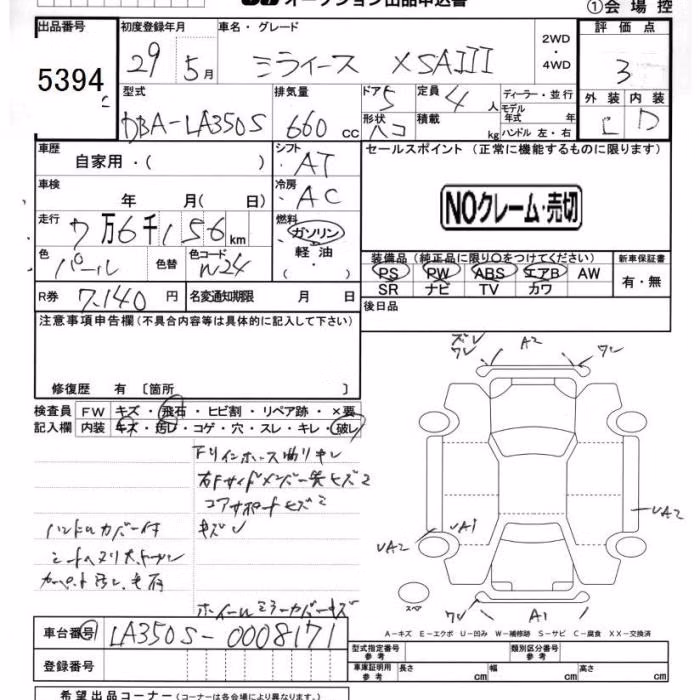 オークション出品申込書
①会場控
出品番号 初度登録年月 車名・グレード 2WD・4WD 評価点
5394 29 5月 ミライース XSAIII 3
型式 排気量 ドア 5 定員 4人 ディーラー・並行 外装 内装
DBA-LA350S 660cc 形状 ハコ 積載 kg モデル年式 年式 ハンドル 左・右 C D
車歴 自家用・( ) シフト AT セールスポイント (正常に機能するものに限ります)
車検 年 月( 日) 冷房 AC
NOクレーム・売切
走行 7万6千156km 燃料 ガソリン・軽油・( )
色 パール 色替 色コード W24
装備品 (純正品に限り○をつけてください) 新車保証書
PS PW ABS エアB AW 有・無
SR ナビ TV カワ
R券 7,140円 名変通知期限 月 日
後日品
注意事項申告欄 (不具合内容等は具体的に記入して下さい)
修復歴 有 〔箇所 〕
検査員 FW キズ・飛石・ヒビ割・リペア跡・×要
記入欄 内装 キズ・汚レ・コゲ・穴・スレ・キレ・破レ
ズレ
ワレ A2 ワレ
Fリインホース曲リキレ
右Fサイドメンバー先ヒズミ
コアサポートヒズミ
キズレ
ハンドルカバー付
カーペット汚レ
ホイールミラーカバーキズ
UA1 UA2 UA2
ワレ A1
スペア
A-キズ E-エクボ U-凹み W-補修跡 S-サビ C-腐食 XX-交換済
車台番号 LA350S-0008171
登録番号
型式指定番号 参考 類別区分番号 参考
車庫証明用 参考 長さ cm 幅 cm 高さ cm
希望出品コーナー (コーナーは各会場により異なります。)